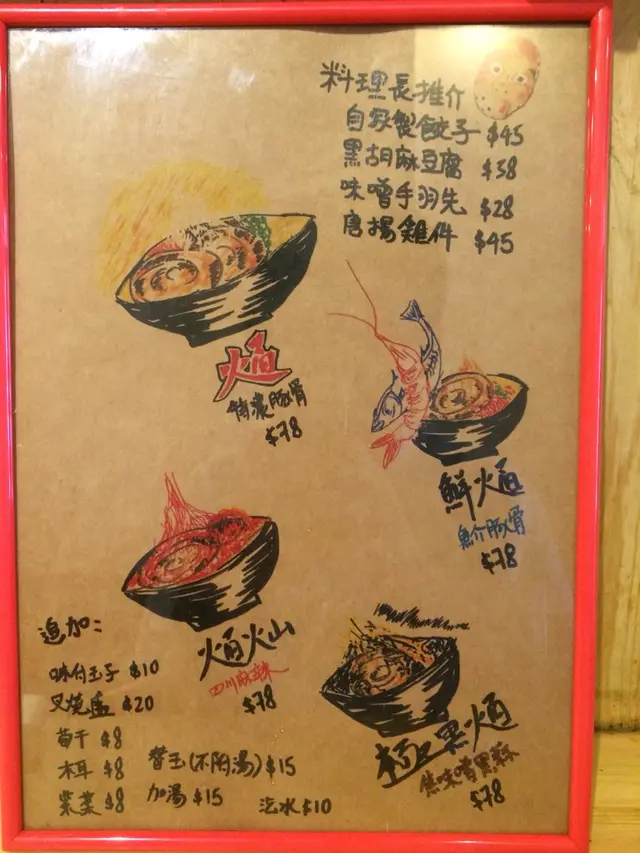 料理長推介
自家製餃子 $45
黑胡麻豆腐 $38
味噌手羽先 $28
唐揚雞件 $45
焔
特濃豚骨
$78
鮮焔
魚介豚骨
$78
焔火山
四川麻辣
$78
極黑焔
焦味噌黑蒜
$78
追加:
味付玉子 $10
叉燒盛 $20
筍干 $8
木耳 $8
紫菜 $8
替玉(不附湯) $15
加湯 $15
汽水 $10